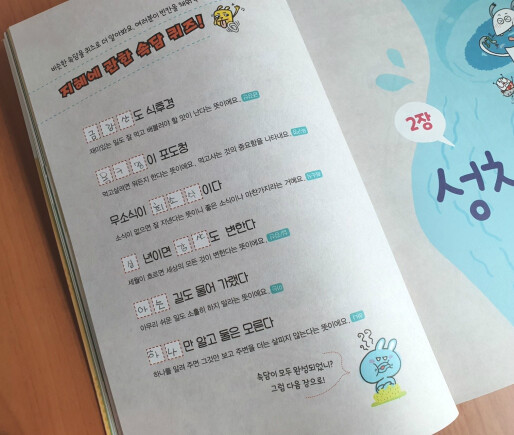 비슷한 속담을 퀴즈로 더 알아봐요. 여러분이 빈칸을 채워
지혜에 관한 속담 퀴즈!
금강산도 식후경
재미있는 일도 잘 먹고 배불러야 할 맛이 난다는 뜻이에요.
이 포도청
먹고살려면 뭐든지 한다는 뜻이에요. 먹고사는 것의 중요함을 나타내요.
무소식이 희소식이다
소식이 없으면 잘 지낸다는 뜻이니 좋은 소식이나 마찬가지라는 거예요.
십 년이면 강산도 변한다
세월이 흐르면 세상의 모든 것이 변한다는 뜻이에요.
아는 길도 물어 가랬다
아무리 쉬운 일도 소홀히 하지 말라는 뜻이에요.
하나만 알고 둘은 모른다
하나를 알려 주면 그것만 보고 주변을 더는 살피지 않는다는 뜻이에요.
속담이 모두 완성되었니?
그럼 다음 장으로!
2장
성